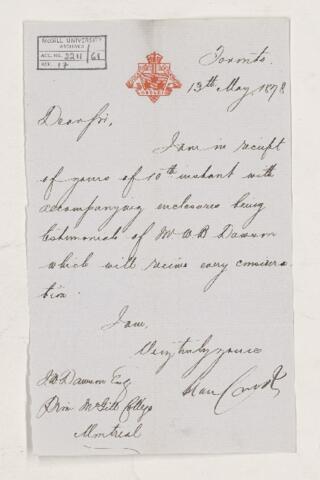 McGILL UNIVERSITY
ARCHIVES
ACC. NO. 2211 / 61
REF. 17
Toronto.
13th May 1878
Dear Sir,
I am in receipt
of yours of 10th instant with
accompanying enclosures being
testimonials of Mr W B Dawson
which will receive every considera
tion.
I am,
Very truly yours
J W Dawson Esq
Prin McGill College
Montreal